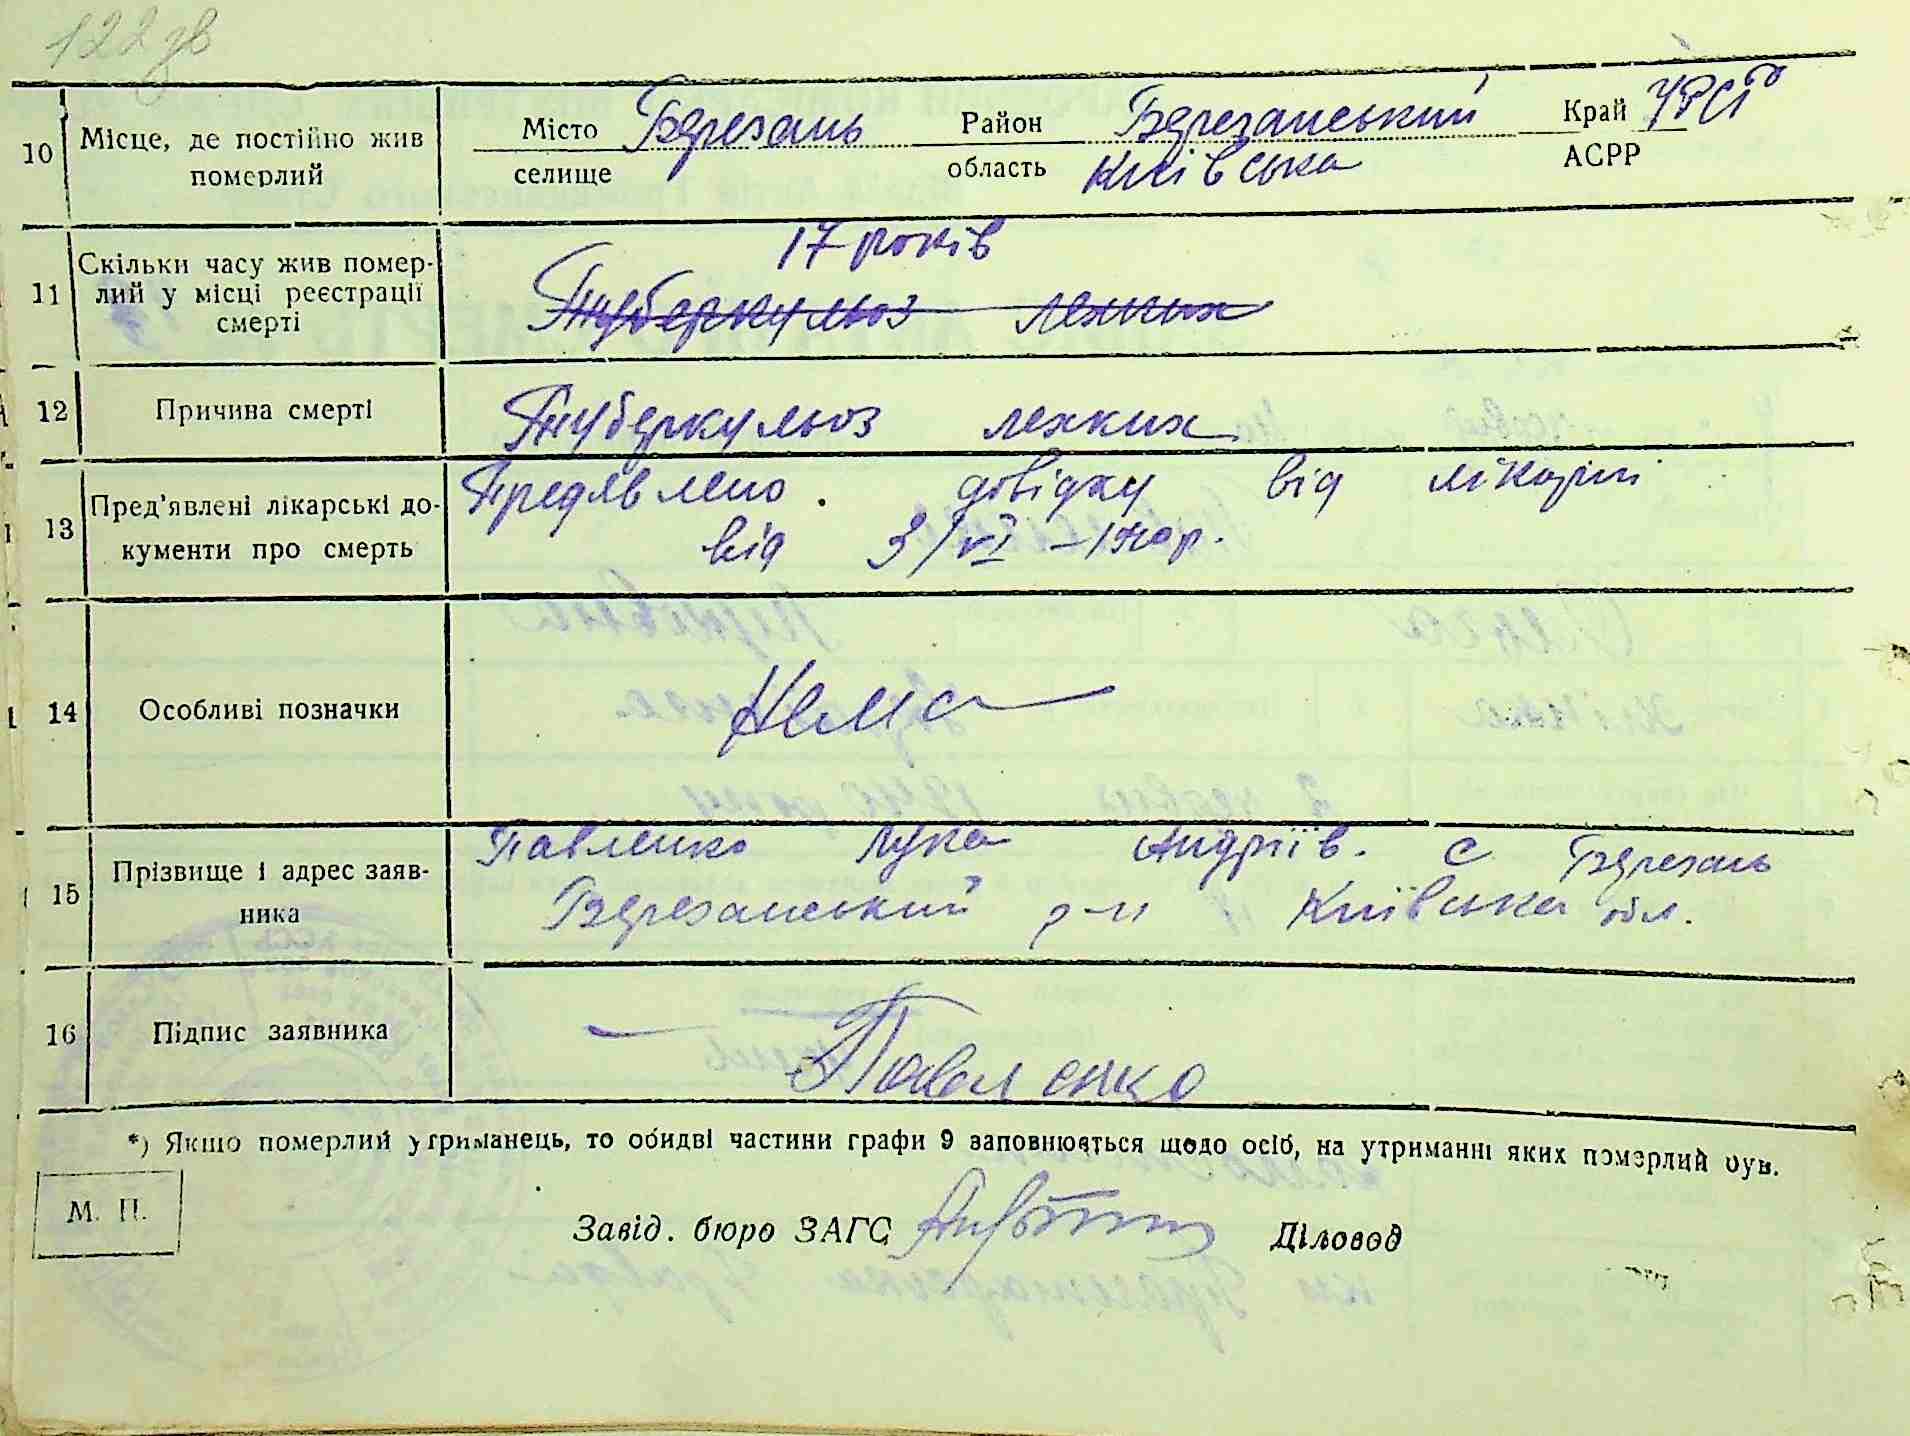 122 зв
10 Місце, де постійно жив померлий
Місто Березань Район Березанський Край УРСР
селище область Київська АСРР
11 Скільки часу жив помер-
лий у місці реєстрації
смерті
17 років
Туберкульоз легких
12 Причина смерті Туберкульоз легких
13 Пред'явлені лікарські до-
кументи про смерть
Предявлено. довідку від лікарні
від 3/VI – 1940 р.
14 Особливі позначки Нема
15 Прізвище і адрес заяв-
ника
Павленко Лука Андріїв. с Березань
Березанський р-н Київська обл.
16 Підпис заявника Павленко
*) Якщо померлий утриманець, то обидві частини графи 9 заповнюється щодо осіб, на утриманні яких померлий був.
М. П.
Завід. бюро ЗАГС Діловод